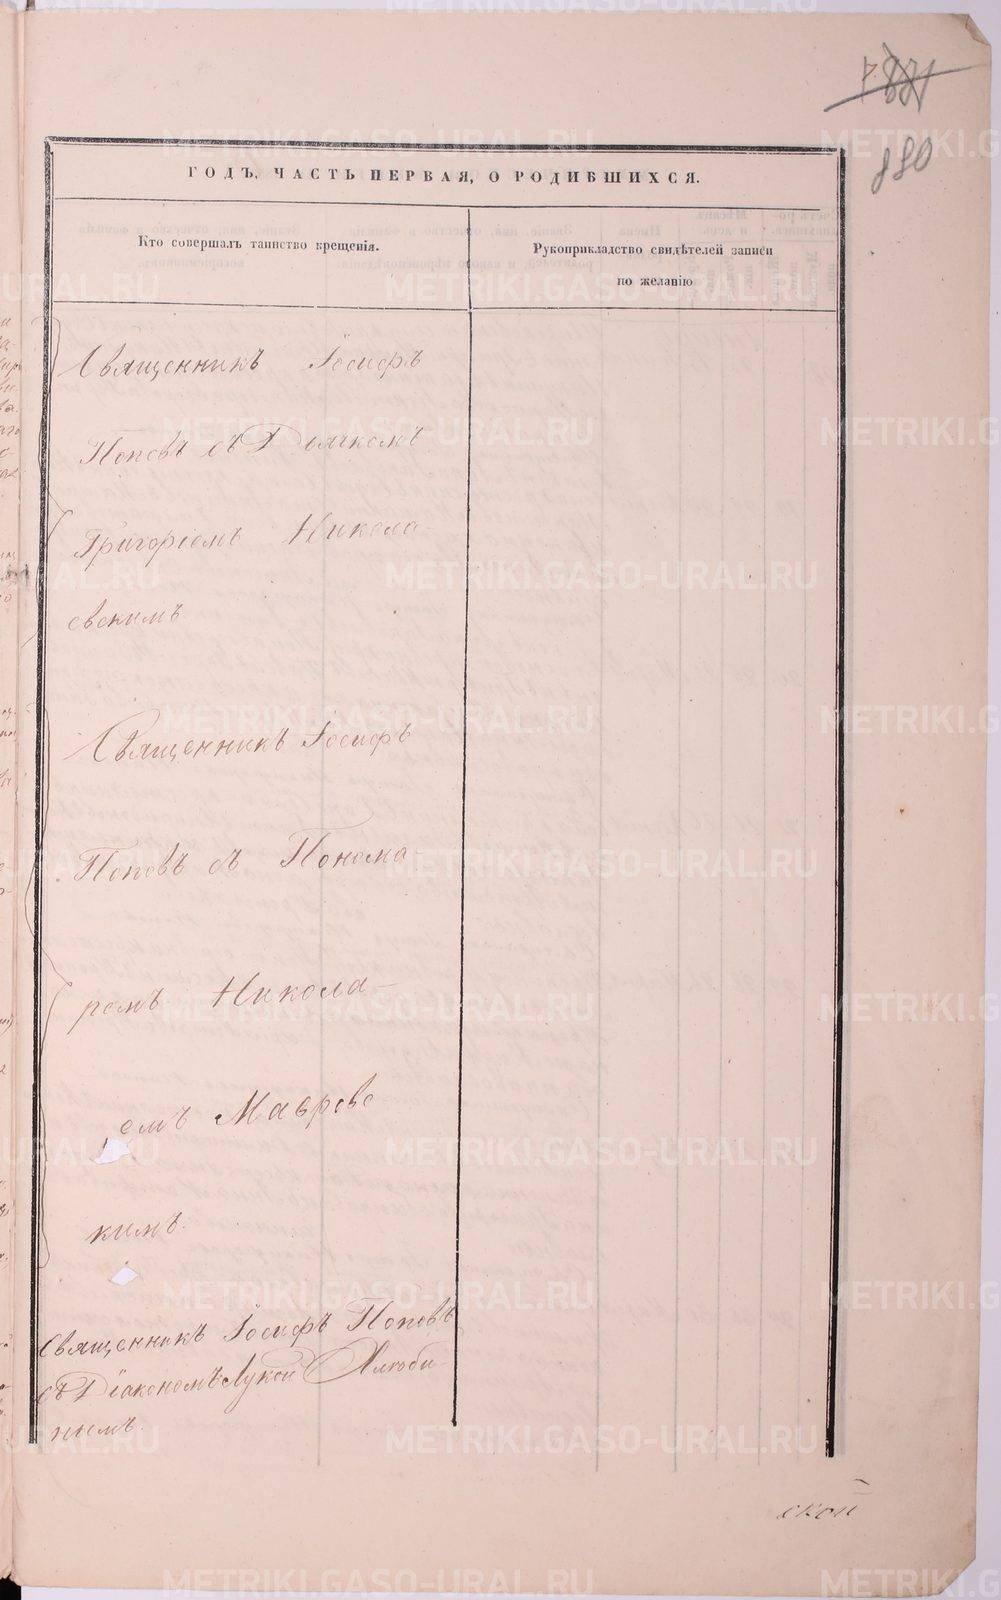 880
ГОДЪ, ЧАСТЬ ПЕРВАЯ, О РОДИВШИХСЯ.
Кто совершалъ таинство крещенія.
Рукоприкладство свидѣтелей записи
по желанію
Священникъ Іосифъ
Поповъ съ Дьячкомъ
Григоріемъ Никола-
евскимъ
Священникъ Іосифъ
Поповъ съ Понома-
ремъ Никола-
емъ Мавровс
кимъ.
Священникъ Іосифъ Поповъ
съ Діакономъ Лукой Хлюби
нымъ.
METRIKI.GASO-URAL.RU